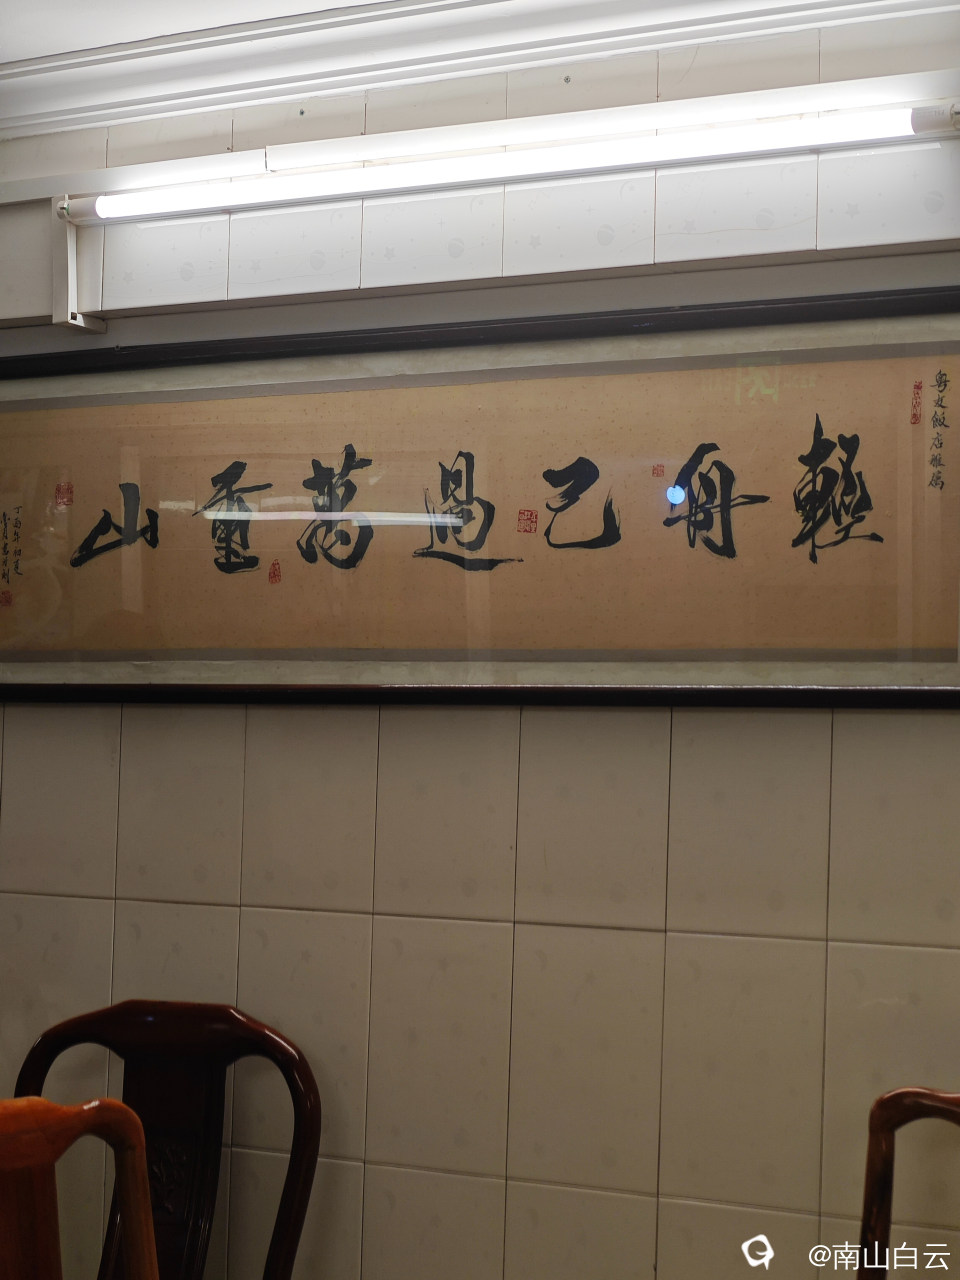 粤文飯店雅屬
輕舟已過萬重山
丁酉年初夏
@南山白云